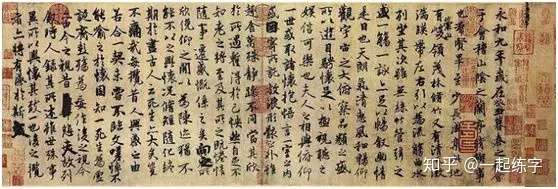 永和九年歲在癸丑暮春之初會
于會稽山陰之蘭亭脩禊事
也羣賢畢至少長咸集此地
有崇山峻領茂林脩竹又有清流激
湍暎帶左右引以為流觴曲水
列坐其次雖無絲竹管弦之
盛一觴一詠亦足以暢敘幽情
是日也天朗氣清惠風和暢仰
觀宇宙之大俯察品類之盛
所以遊目騁懷足以極視聽之
娛信可樂也夫人之相與俯仰
一世或取諸懷抱悟言一室之內
或因寄所託放浪形骸之外雖
趣舍萬殊靜躁不同當其欣
於所遇蹔得於己怏然自足不
知老之將至及其所之既惓情
隨事遷感慨係之矣向之所
欣俛仰之閒以為陳迹猶不
能不以之興懷況脩短隨化終
期於盡古人云死生亦大矣豈
不痛哉每攬昔人興感之由
若合一契未嘗不臨文嗟悼不
能喻之於懷固知一死生為虛
誕齊彭殤為妄作後之視今
亦由今之視昔悲夫故列
敘時人錄其所述雖世殊事
異所以興懷其致一也後之攬
者亦將有感於斯
知乎 @一起练字